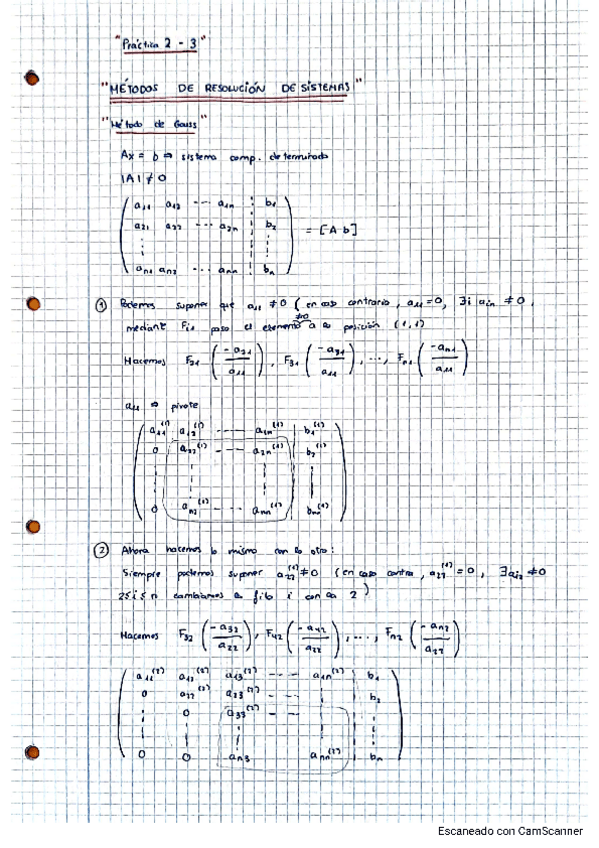 "Práctica 2 - 3"
"MÉTODOS DE RESOLUCIÓN DE SISTEMAS"
"Método de Gauss"
Ax = b ⇒ sistema comp. determinado
|A| ≠ 0
a₁₁ a₁₂ --- a₁ₙ | b₁
a₂₁ a₂₂ --- a₂ₙ | b₂
= [A b]
aₙ₁ aₙ₂ --- aₙₙ | bₙ
① Podemos suponer que a₁₁ ≠ 0 (en caso contrario, a₁₁ = 0, ∃i aᵢₙ ≠ 0,
mediante Fᵢ₁ paso el elemento ≠0 a la posición (1,1)
Hacemos F₂₁ (-a₂₁/a₁₁), F₃₁ (-a₃₁/a₁₁), ..., Fₙ₁ (-aₙ₁/a₁₁)
a₁₁ ⇒ pivote
a₁₁⁽¹⁾ a₁₂⁽¹⁾ ---- a₁ₙ⁽¹⁾ | b₁⁽¹⁾
0 a₂₂⁽¹⁾ ---- a₂ₙ⁽¹⁾ | b₂⁽¹⁾
0 aₙ₂⁽¹⁾ ---- aₙₙ⁽¹⁾ | bₙₙ⁽¹⁾
② Ahora hacemos lo mismo con lo otro:
Siempre podemos suponer a₂₂⁽¹⁾ ≠ 0 (en caso contra, a₂₂⁽¹⁾ = 0, ∃aᵢ₂ ≠ 0
2≤i≤n cambiamos la fila i con la 2)
Hacemos F₃₂ (-a₃₂/a₂₂), F₄₂ (-a₄₂/a₂₂), ..., Fₙ₂ (-aₙ₂/a₂₂)
a₁₁⁽²⁾ a₁₂⁽²⁾ a₁₃⁽²⁾ --- a₁ₙ⁽²⁾ | b₁
0 a₂₂⁽²⁾ a₂₃⁽²⁾ --- | b₂
0 a₃₃⁽²⁾ ---
0 0 aₙ₃ aₙₙ⁽²⁾ | bₙ
Escaneado con CamScanner